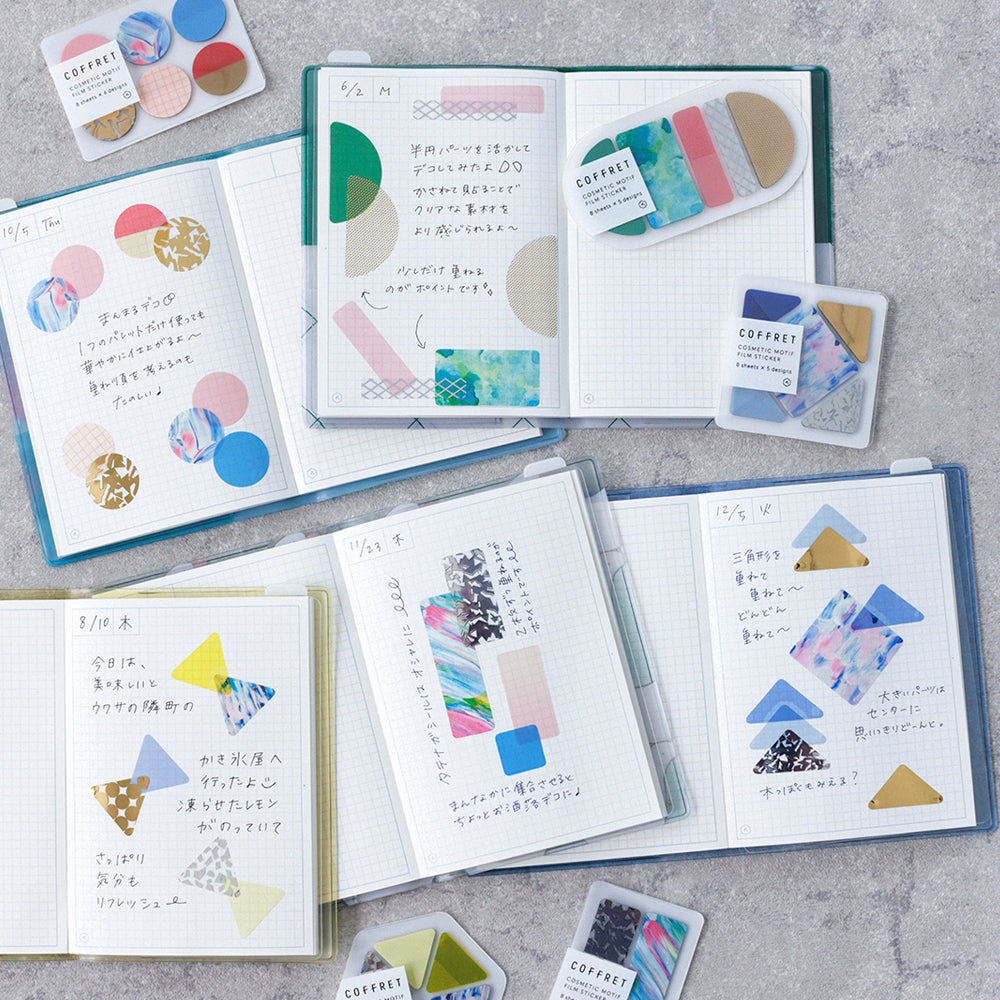 COFFRET
COSMETIC MOTIF
FILM STICKER
8 sheets × 6 designs
6/2 M
半円パーツを活かして
デコしてみたよ
かさねて貼ることで
クリアな素材を
より感じられるよ〜
少しだけ重ねる
のがポイントです
COFFRET
COSMETIC MOTIF
FILM STICKER
8 sheets × 5 designs
10/5 Thu
まんまるデコ
1つのパレットだけ使っても
華やかに仕上がるよ〜
重ね順を考えるのも
たのしい♪
COFFRET
COSMETIC MOTIF
FILM STICKER
8 sheets × 5 designs
11/23 木
タテナガシールはオシャレに
2枚ずつ重ねるのが
ポイントです
まんなかに集合させると
ちょっとお洒落デコに♪
12/5 火
三角形を
重ねて
重ねて〜
どんどん
重ねて〜
大きいパーツは
センターに
思いっきりどーんと。
木っぽくもみえる?
8/10 木
今日は、
美味しいと
ウワサの隣町の
かき氷屋へ
行ったよ
凍らせたレモン
がのっていて
さっぱり
気分も
リフレッシュ
COFFRET
COSMETIC MOTIF
COFFRET
COSMETIC MOTIF
FILM STICKER